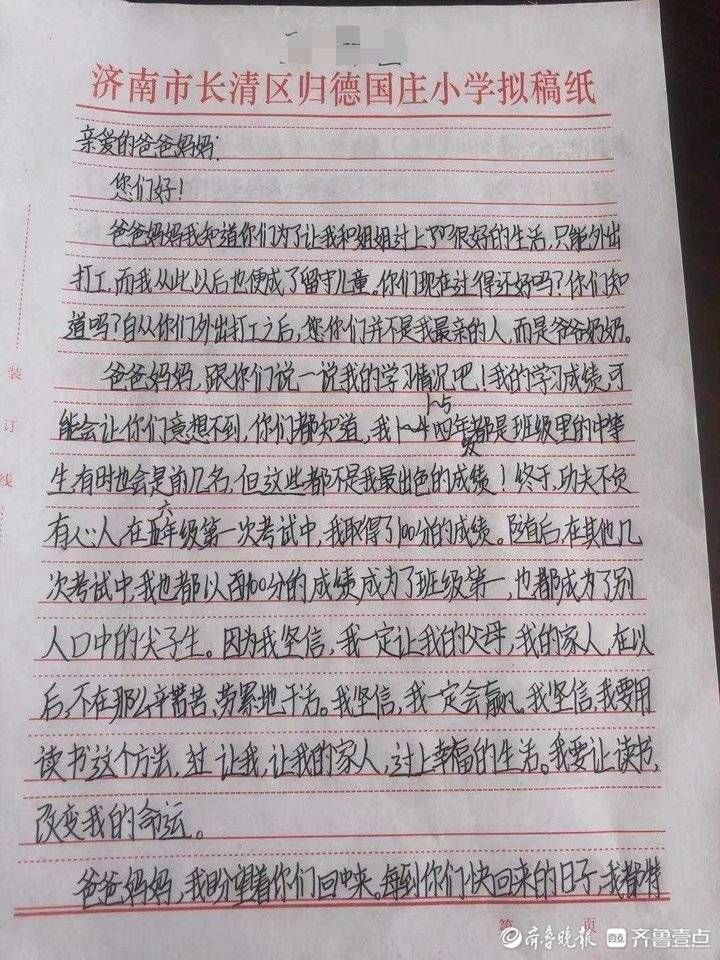 济南市长清区归德国庄小学拟稿纸
亲爱的爸爸妈妈:
您们好!
爸爸妈妈我知道你们为了让我和姐姐过上很好的生活,只能外出
打工,而我从此以后也便成了留守儿童。你们现在过得还好吗?你们知
道吗?自从你们外出打工之后,您你们并不是我最亲的人,而是爷爷奶奶。
爸爸妈妈,跟你们说一说我的学习情况吧!我的学习成绩,可
1~5
能会让你们意想不到,你们都知道,我四年级都是班级里的中等
生,有时也会是前几名,但这些都不是我最出色的成绩!终于,功夫不负
六
有心人,在五年级第一次考试中,我取得了100分的成绩。随后,在其他几
次考试中,我也都以百100分的成绩,成为了班级第一,也都成为了别
人口中的尖子生。因为我坚信,我一定让我的父母,我的家人,在以
后,不在那么辛苦苦、劳累地干活。我坚信,我一定会赢。我坚信,我要用
读书这个方法,过让我,让我的家人,过上幸福的生活。我要让读书,
改变我的命运。
爸爸妈妈,我盼望着你们回来。每到你们快回来的日子,我都特
装
订
线
第 页
齐鲁晚报
齐鲁壹点